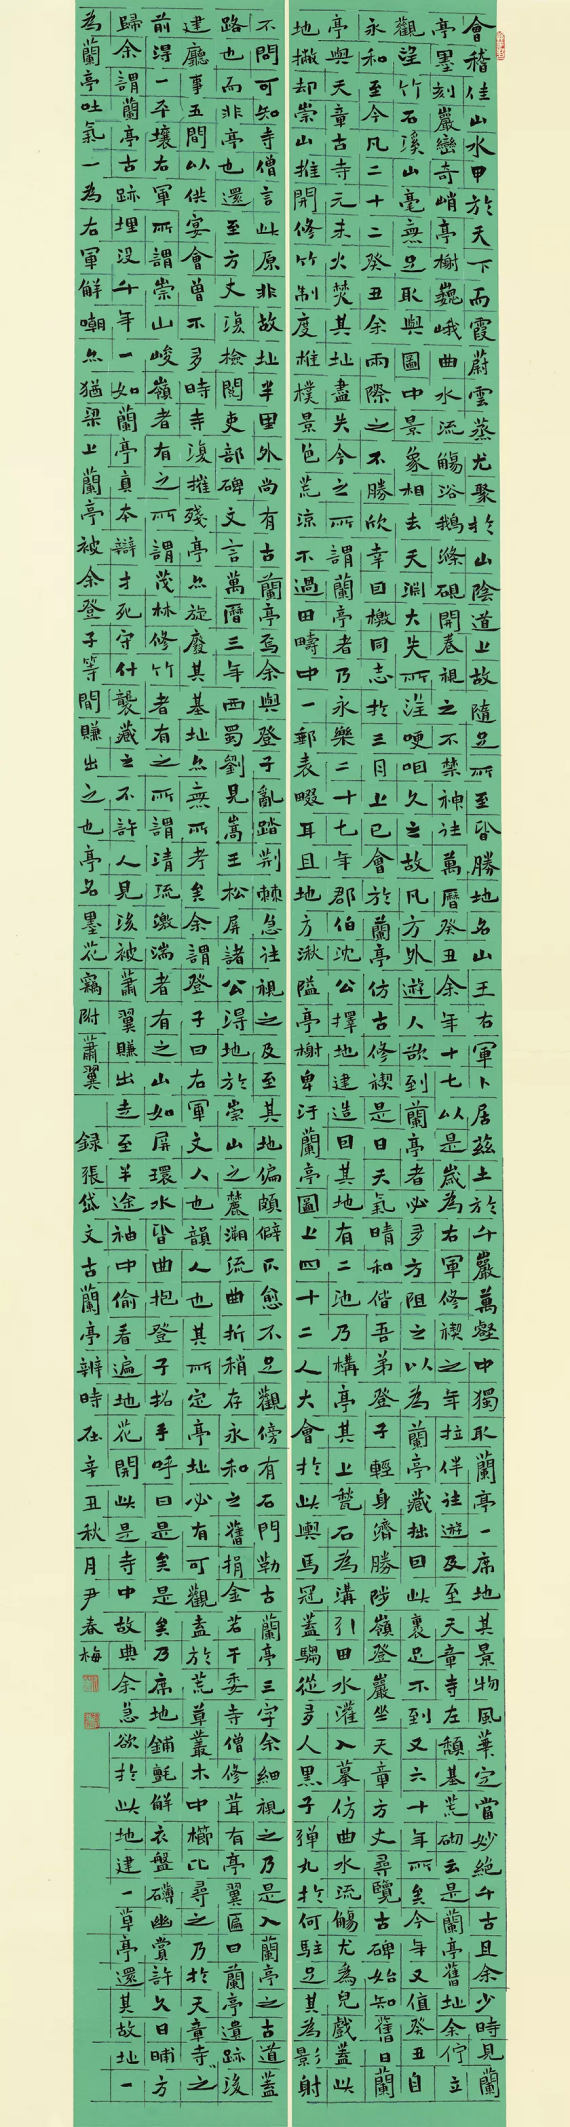 會稽佳山水甲於天下而霞蔚雲蒸尤聚於山陰道上故隨足所至皆勝地名山王右軍卜居茲土於千巖萬壑中獨取蘭亭一席地其景物風華定當妙絕千古且余少時見蘭
亭墨刻巖巒奇峭亭榭巍峨曲水流觴浴鵝滌硯開卷視之不禁神往萬曆癸丑余年十七以是歲為右軍修禊之年拉伴往遊及至天章寺左頹基荒砌云是蘭亭舊址余佇立
觀望竹石溪山毫無足取與圖中景象相去天淵大失所望哽咽久之故凡方外遊人欲到蘭亭者必多方阻之以為蘭亭藏拙囙此裹足不到又六十年所矣今年又值癸丑自
永和至今凡二十二癸丑余兩際之不勝欣幸囙檄同志於三月上巳會於蘭亭仿古修禊是日天氣晴和偕吾弟登子輕身濟勝陟嶺登巖坐天章方丈尋覽古碑始知舊日蘭
亭與天章古寺元末火焚其址盡失今之所謂蘭亭者乃永樂二十七年郡伯沈公擇地建造囙其地有二池乃構亭其上甃石為溝引田水灌入摹仿曲水流觴尤為兒戲蓋此
地撇却崇山推開修竹制度椎樸景色荒涼不過田疇中一郵表畷耳且地方湫隘亭榭卑汙蘭亭圖上四十二人大會於此輿馬冠蓋騶從多人黑子彈丸於何駐足其為影射
不問可知寺僧言此原非故址半里外尚有古蘭亭焉余與登子亂踏荊棘急往視之及至其地偏頗僻仄愈不足觀傍有石門勒古蘭亭三字余細視之乃是入蘭亭之古道蓋
路也而非亭也還至方丈復檢閱吏部碑文言萬曆三年西蜀劉見嵩王松屏諸公得地於崇山之麓溯流曲折稍存永和之舊捐金若干委寺僧修葺有亭翼區曰蘭亭遺跡後
建廳事五間以供宴會曾不多時寺復摧殘亭亦旋廢其基址亦無所考矣余謂登子曰右軍文人也韻人也其所定亭址必有可觀盍於荒草叢木中櫛比尋之乃於天章寺之
前得一平壤右軍所謂崇山峻嶺者有之所謂茂林修竹者有之所謂清流激湍者有之山如屏環水皆曲抱登子招手呼曰是矣是矣乃席地鋪氈解衣盤礴幽賞許久日晡方
歸余謂蘭亭古跡埋沒千年一如蘭亭真本辯才死守什襲藏之不許人見後被蕭翼賺出走至半途袖中偷看遍地花開此是寺中故典余急欲於此地建一草亭還其故址一
為蘭亭吐氣一為右軍解嘲亦猶梁上蘭亭被余登子等間賺出之也亭名墨花竊附蕭翼 錄張岱文古蘭亭辨時在辛丑秋月尹春梅